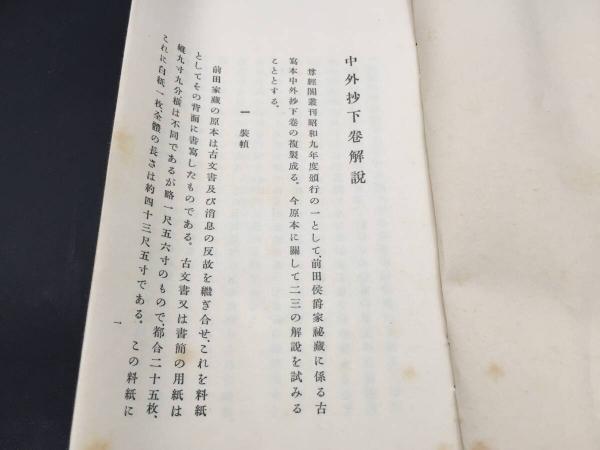 中外抄下卷解說
尊經閣叢刊昭和九年度頒行の一として、前田侯爵家祕藏に係る古
寫本中外抄下卷の複製成る。今原本に關して二三の解說を試みる
こととする。
一 裝幀
前田家藏の原本は、古文書及び消息の反故を繼ぎ合せ、これを料紙
としてその背面に書寫したものである。古文書又は書簡の用紙は
縱九寸九分橫は不同であるが略一尺五六寸のもので、都合二十五枚、
これに白紙一枚、全體の長さは約四十三尺五寸である。この料紙に
一